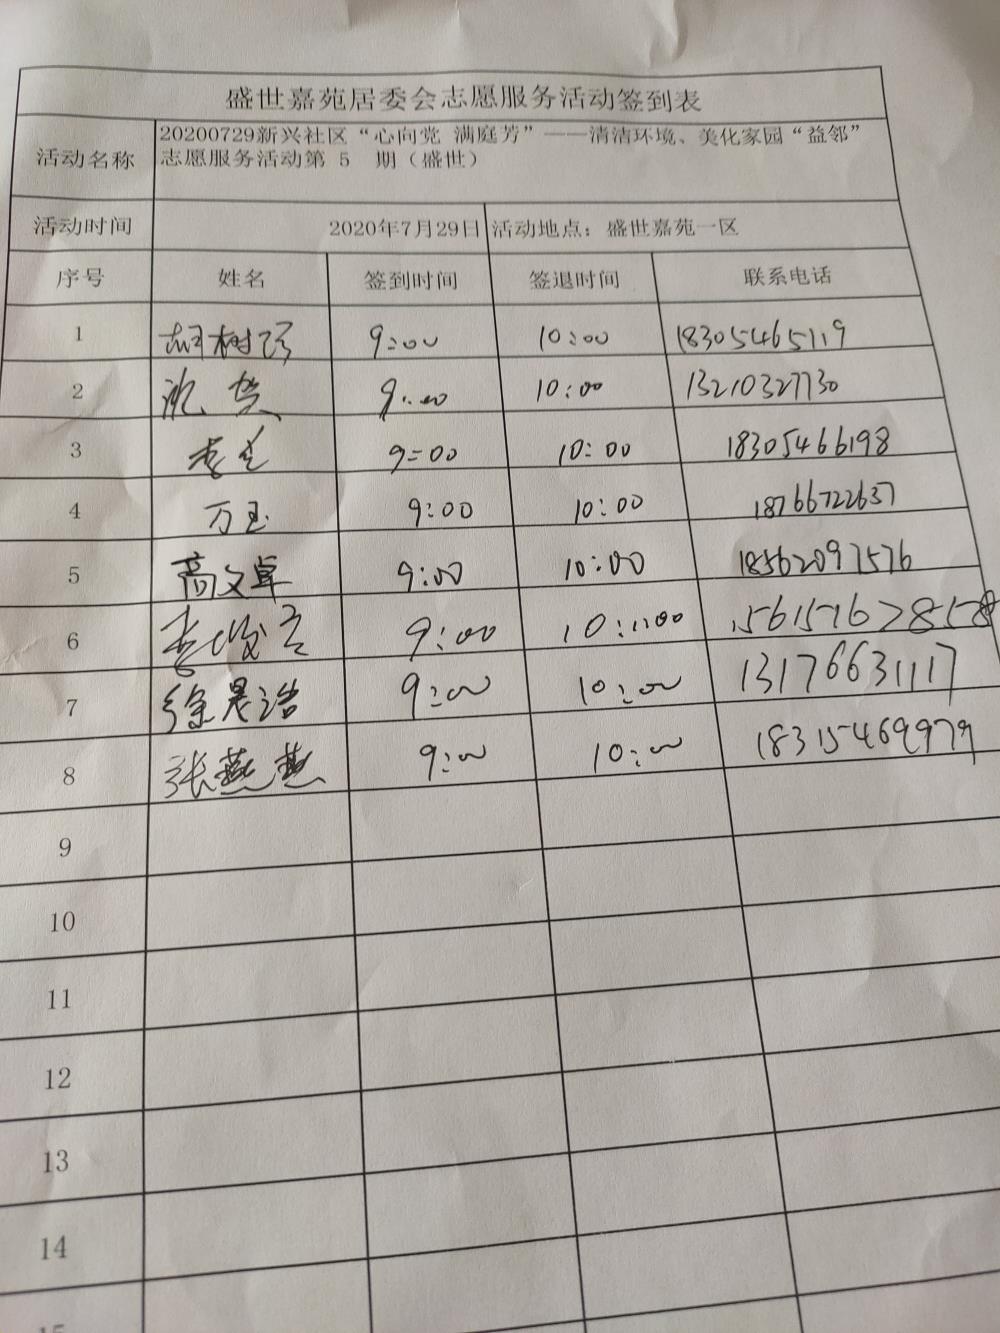 盛世嘉苑居委会志愿服务活动签到表
活动名称 20200729新兴社区“心向党 满庭芳”——清洁环境、美化家园“益邻”
志愿服务活动第 5 期（盛世）
活动时间 2020年7月29日 活动地点：盛世嘉苑一区
序号 姓名 签到时间 签退时间 联系电话
1 9:00 10:00 18305465119
2 9:00 10:00 13210327730
3 9:00 10:00 18305466198
4 万玉 9:00 10:00 18766722637
5 高文卓 9:00 10:00 18562097576
6 李俊 9:00 10:00 15615167858
7 徐晨浩 9:00 10:00 13176631117
8 张燕燕 9:00 10:00 18315469979
9
10
11
12
13
14
15